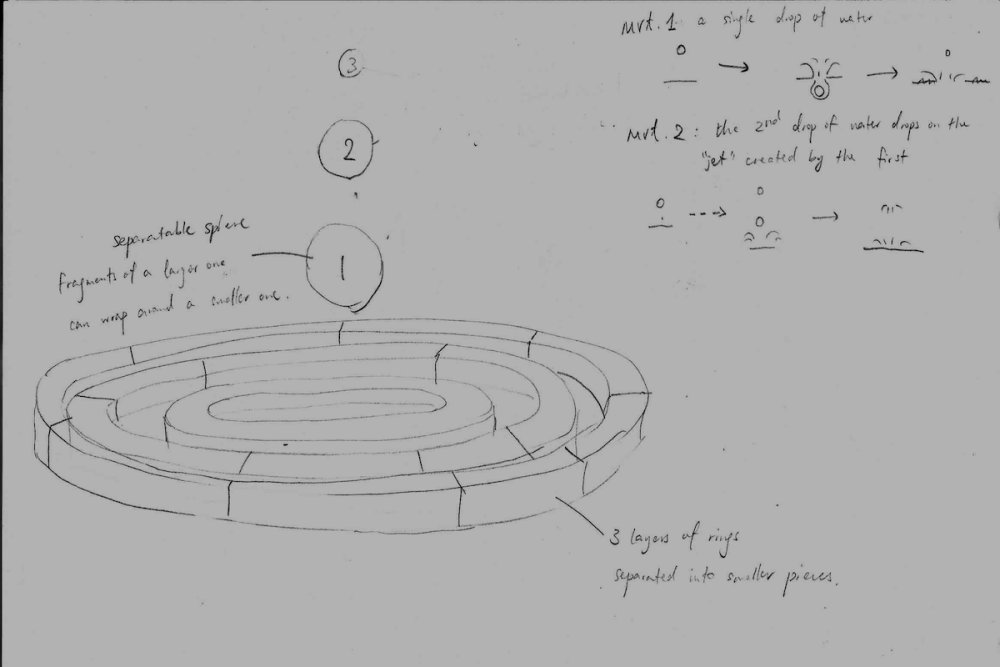 mvt. 1 a single drop of water
mvt. 2 : the 2nd drop of water drops on the
"jet" created by the first
3
2
1
separatable sphere
fragments of a larger one
can wrap around a smaller one.
3 layers of rings
separated into smaller pieces.